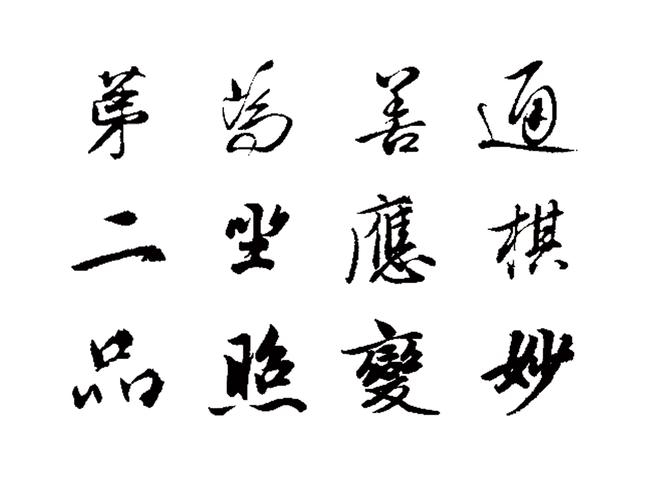 通棋妙
善應變
為坐照
第二品